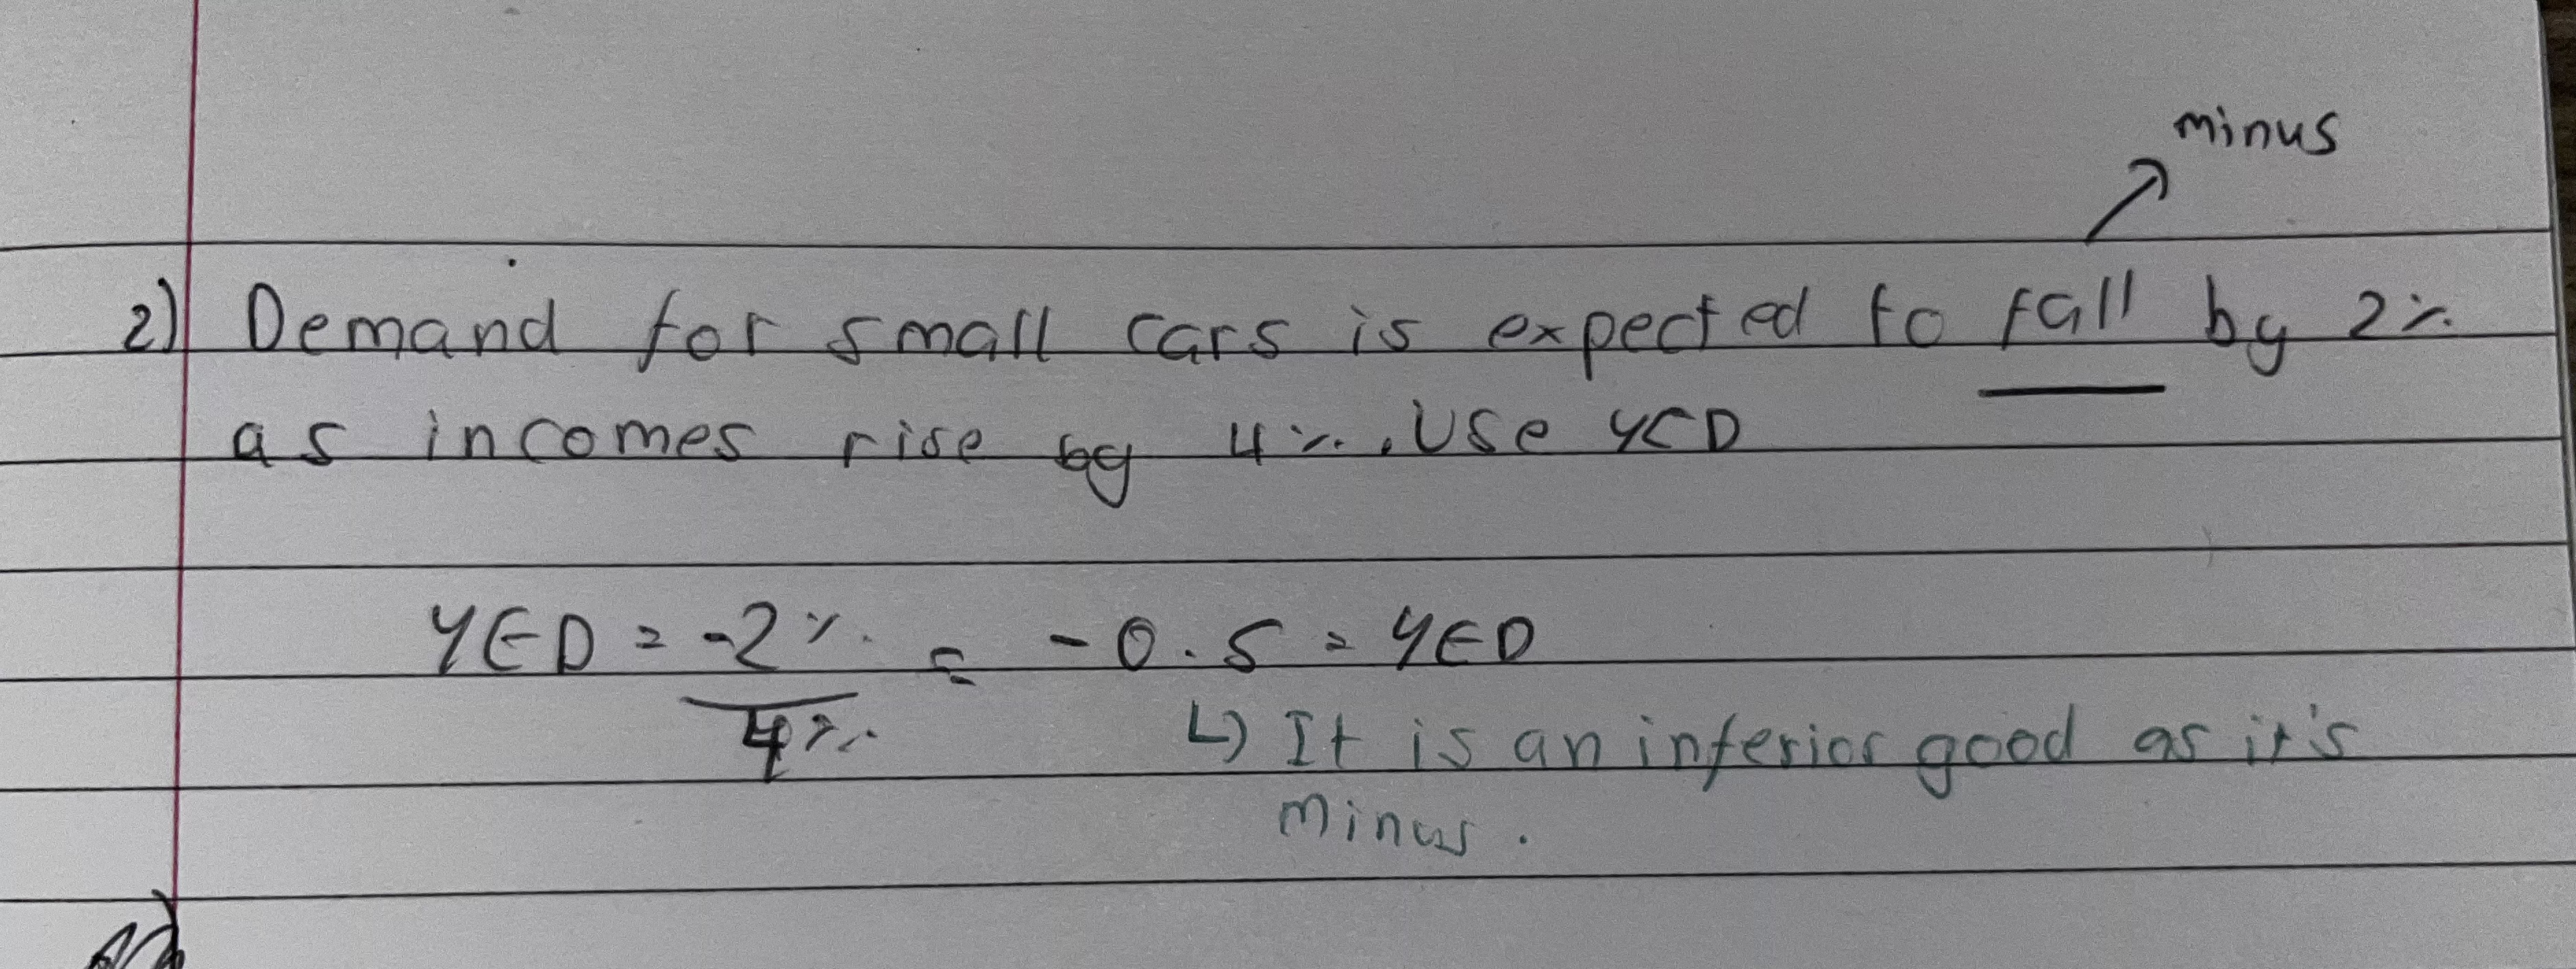 minus
2) Demand for small cars is expected to fall by 2%
as incomes rise by 4%. Use YED
YED = -2% = -0.5 = YED
4%
↳ It is an inferior good as it's
minus.